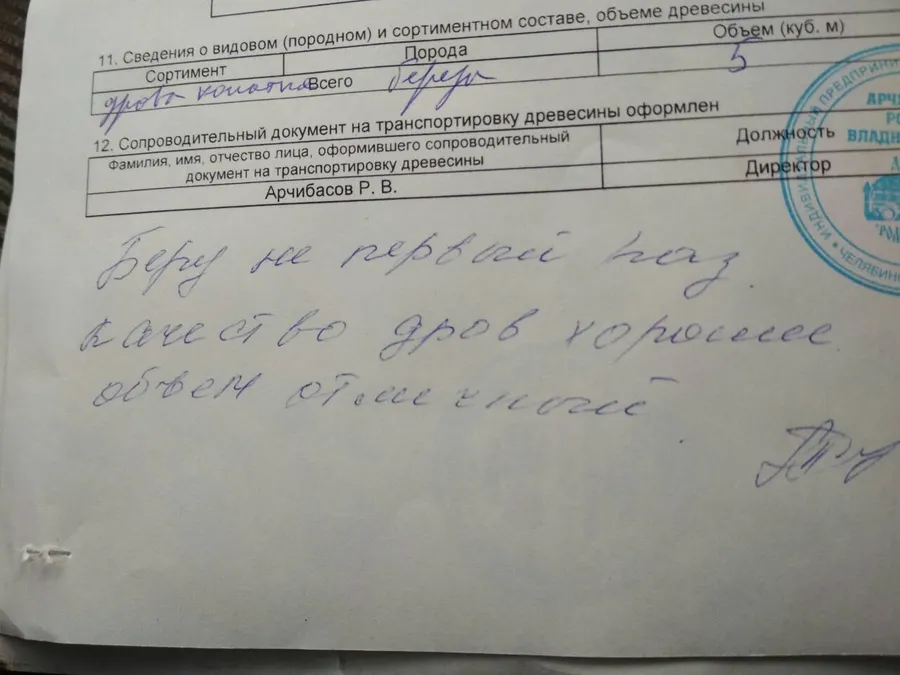 11. Сведения о видовом (породном) и сортиментном составе, объеме древесины
Сортимент
Порода
Объем (куб. м)
дрова колотые
Всего
береза
5
12. Сопроводительный документ на транспортировку древесины оформлен
Фамилия, имя, отчество лица, оформившего сопроводительный
документ на транспортировку древесины
Должность
Арчибасов Р. В.
Директор
ИНДИВИДУАЛЬНЫЙ ПРЕДПРИНИ
ЧЕЛЯБИНС
АРЧ
РО
ВЛАДИ
Беру не первый раз
качество дров хорошее
объем отличный